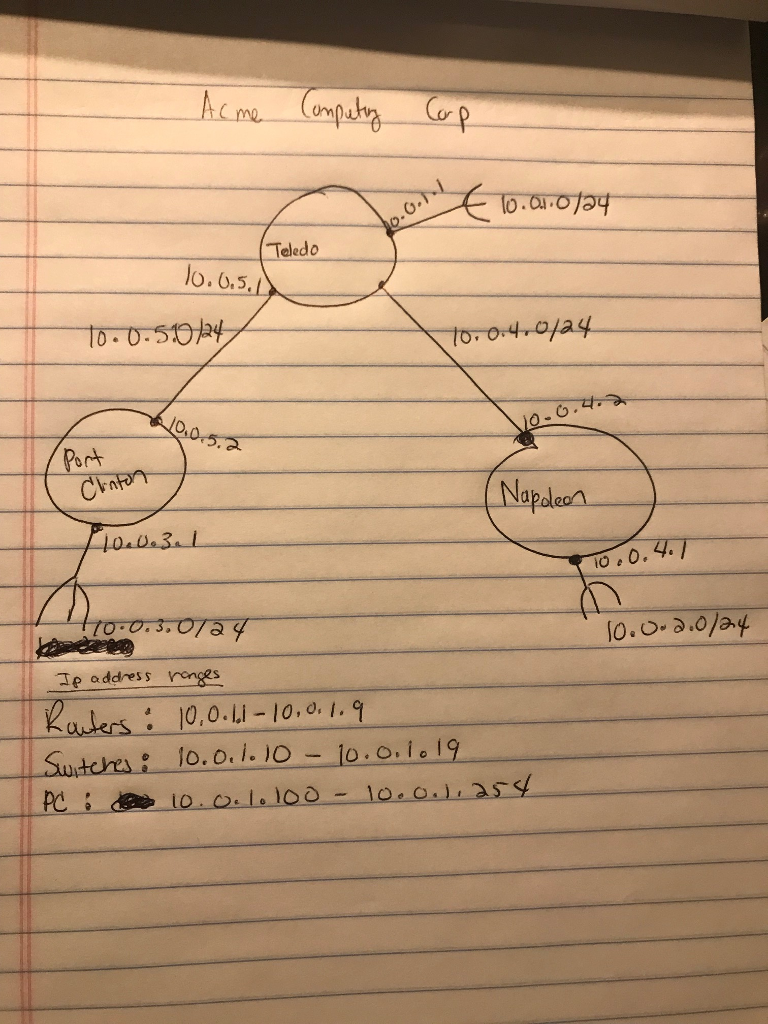 Acme Computing Corp
10.0.1.1
10.0.1.0/24
Toledo
10.0.5.1
10.0.5.0/24
10.0.4.0/24
10.0.4.2
10.0.5.2
Port
Clinton
Napoleon
10.0.3.1
10.0.4.1
10.0.3.0/24
10.0.2.0/24
Ip address ranges
Routers: 10.0.1.1 - 10.0.1.9
Switches: 10.0.1.10 - 10.0.1.19
PC: 10.0.1.100 - 10.0.1.254